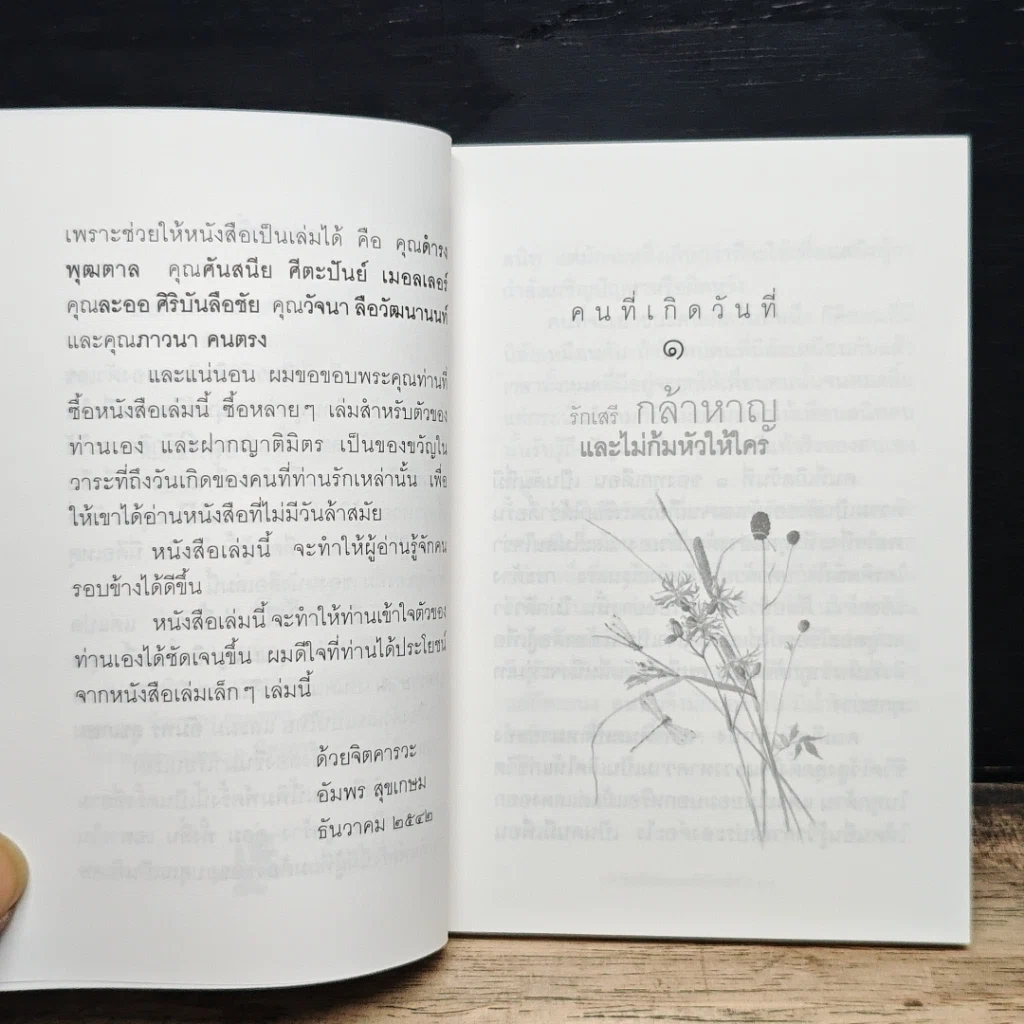 เพราะช่วยให้หนังสือเป็นเล่มได้ คือ คุณดำรง
พุฒตาล คุณศันสนีย ศีตะปันย์ เมอลเลอร์
คุณละออ ศิริบันลือชัย คุณวัจนา ลือวัฒนานนท์
และคุณภาวนา คนตรง
และแน่นอน ผมขอขอบพระคุณท่านที่
ซื้อหนังสือเล่มนี้ ซื้อหลายๆ เล่มสำหรับตัวของ
ท่านเอง และฝากญาติมิตร เป็นของขวัญใน
วาระที่ถึงวันเกิดของคนที่ท่านรักเหล่านั้น เพื่อ
ให้เขาได้อ่านหนังสือที่ไม่มีวันล้าสมัย
หนังสือเล่มนี้ จะทำให้ผู้อ่านรู้จักคน
รอบข้างได้ดีขึ้น
หนังสือเล่มนี้ จะทำให้ท่านเข้าใจตัวของ
ท่านเองได้ชัดเจนขึ้น ผมดีใจที่ท่านได้ประโยชน์
จากหนังสือเล่มเล็กๆ เล่มนี้
ด้วยจิตคารวะ
อัมพร สุขเกษม
ธันวาคม ๒๕๔๒
คนที่เกิดวันที่
๑
รักเสรี กล้าหาญ
และไม่ก้มหัวให้ใคร